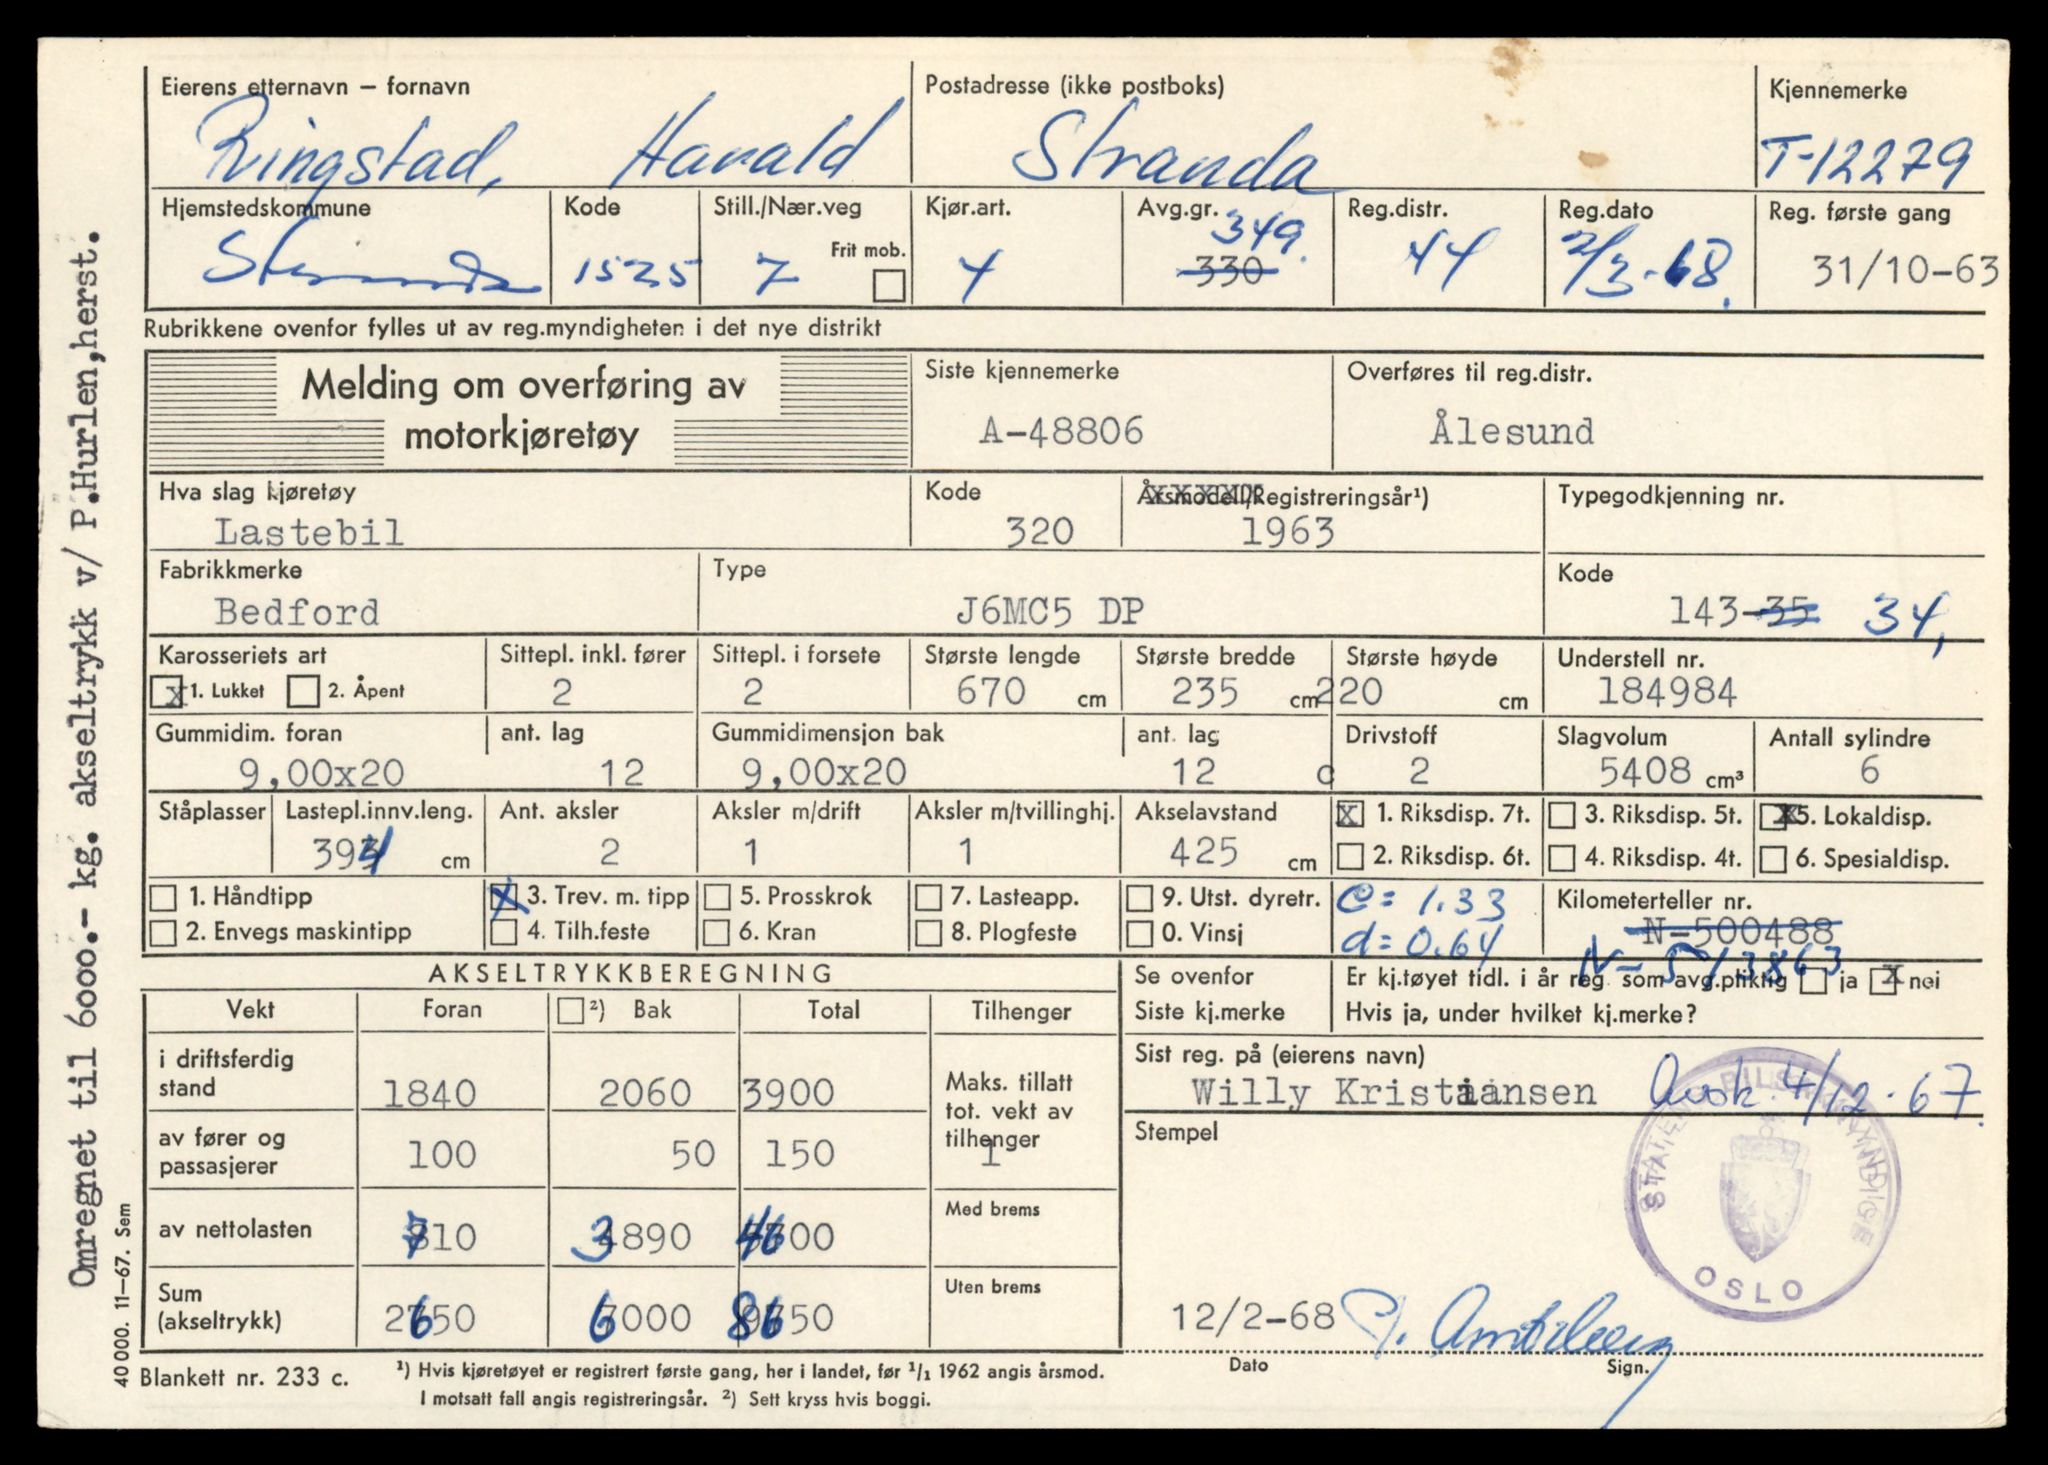 Eierens etternavn – fornavn
Ringstad, Harald
Postadresse (ikke postboks)
Stranda
Kjennemerke
T-12279
Hjemstedskommune
Stranda
Kode
1525
Still./Nær.veg
7
Frit mob.
Kjør.art.
4
Avg.gr.
349.
330
Reg.distr.
44
Reg.dato
2/3-68.
Reg. første gang
31/10-63
Rubrikkene ovenfor fylles ut av reg.myndigheten i det nye distrikt
Melding om overføring av
motorkjøretøy
Siste kjennemerke
A-48806
Overføres til reg.distr.
Ålesund
Hva slag kjøretøy
Lastebil
Kode
320
Årsmodell/Registreringsår¹)
1963
Typegodkjenning nr.
Fabrikkmerke
Bedford
Type
J6MC5 DP
Kode
143-35 34,
Karosseriets art
x 1. Lukket 2. Åpent
Sittepl. inkl. fører
2
Sittepl. i forsete
2
Største lengde
670 cm
Største bredde
235 cm
Største høyde
220 cm
Understell nr.
184984
Gummidim. foran
9,00x20
ant. lag
12
Gummidimensjon bak
9,00x20
ant. lag
12
Drivstoff
2
Slagvolum
5408 cm³
Antall sylindre
6
Ståplasser
Lastepl.innv.leng.
394 cm
Ant. aksler
2
Aksler m/drift
1
Aksler m/tvillinghj.
1
Akselavstand
425 cm
X 1. Riksdisp. 7t. 3. Riksdisp. 5t. X 5. Lokaldisp.
2. Riksdisp. 6t. 4. Riksdisp. 4t. 6. Spesialdisp.
1. Håndtipp X 3. Trev. m. tipp 5. Prosskrok 7. Lasteapp. 9. Utst. dyretr.
2. Envegs maskintipp 4. Tilh.feste 6. Kran 8. Plogfeste 0. Vinsj
c = 1.33
d = 0.64
Kilometerteller nr.
N-500488
N-513863
AKSELTRYKKBEREGNING
Vekt Foran ²) Bak Total Tilhenger
i driftsferdig
stand
1840 2060 3900
Maks. tillatt
tot. vekt av
tilhenger
1
av fører og
passasjerer
100 50 150
av nettolasten
710 3890 4600
Med brems
Sum
(akseltrykk)
2650 6000 8650
Uten brems
Se ovenfor
Siste kj.merke
Er kj.tøyet tidl. i år reg. som avg.pliktig ja X nei
Hvis ja, under hvilket kj.merke?
Sist reg. på (eierens navn)
Willy Kristiansen
Avsk. 4/12-67.
Stempel
STATENS BILSAKKYNDIGE
OSLO
12/2-68
Dato
Sign.
Blankett nr. 233 c.
¹) Hvis kjøretøyet er registrert første gang, her i landet, før 1/1 1962 angis årsmod.
I motsatt fall angis registreringsår. ²) Sett kryss hvis boggi.
40 000. 11–67. Sem
Omregnet til 6000.- kg. akseltrykk v/ P.Hurlen,herst.